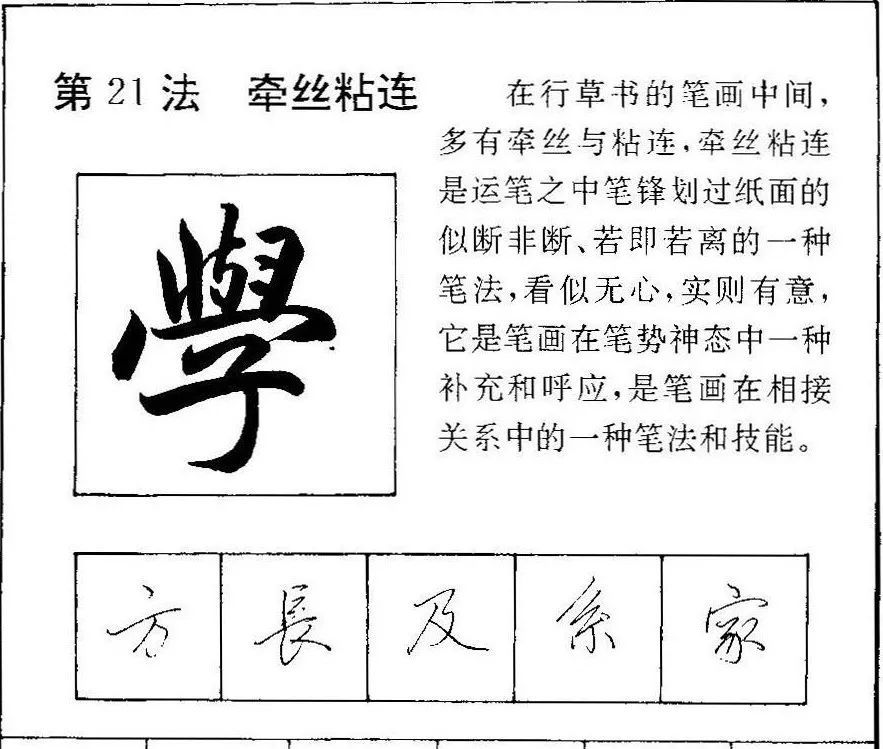 第21法 牵丝粘连
在行草书的笔画中间，
多有牵丝与粘连，牵丝粘连
是运笔之中笔锋划过纸面的
似断非断、若即若离的一种
笔法，看似无心，实则有意，
它是笔画在笔势神态中一种
补充和呼应，是笔画在相接
关系中的一种笔法和技能。
學
方 長 及 系 家